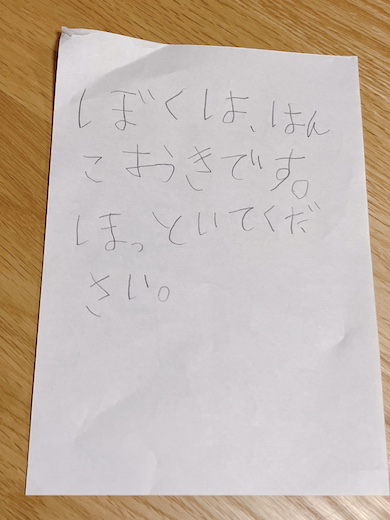 ぼくは、はん
こおきです。
ほっといてくだ
さい。